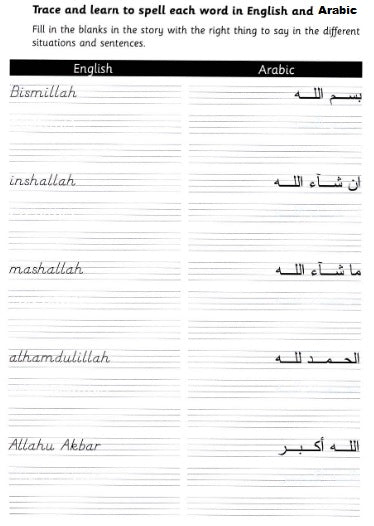 Trace and learn to spell each word in English and Arabic
Fill in the blanks in the story with the right thing to say in the different
situations and sentences.
English Arabic
Bismillah بسم الله
inshallah ان شآء الله
mashallah ما شآء الله
alhamdulillah الحمد لله
Allahu Akbar الله أكبر